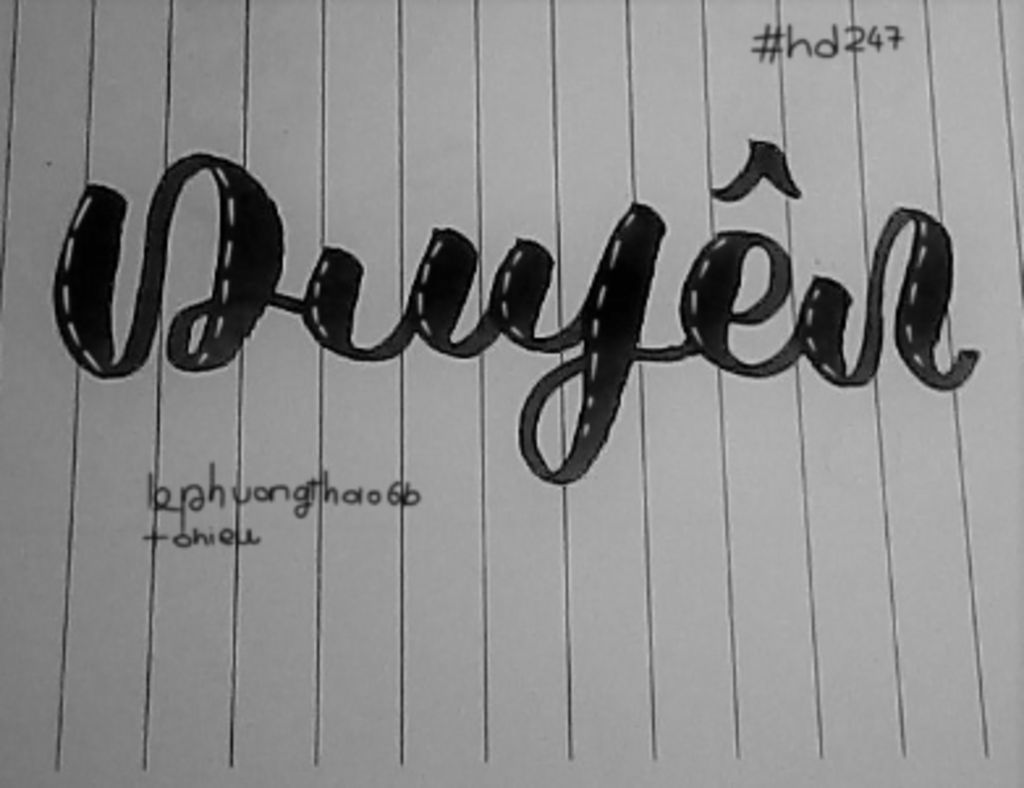 #hd247
Duyên
lephuongthao6b